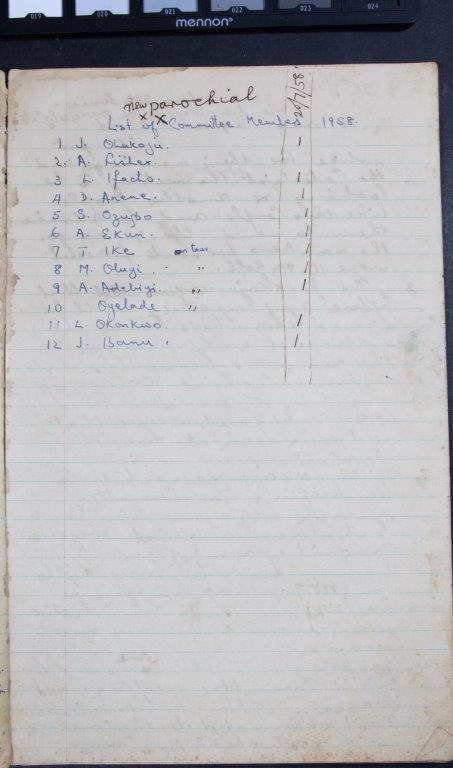 019 020 021 022 023 024
mennon®
new parochial
x x
List of Committee Members 1958.
20/7/58
1 J. Olukoju.
2. A. Fisher.
3 L. Ifacho.
4 D. Anene.
5 S. Ozugbo
6 A. Ekun.
7 T. Ike on tour
8 M. Oluyi. "
9 A. Adebiyi. "
10 Oyelade "
11 L. Okonkwo.
12 J. Ibanu.